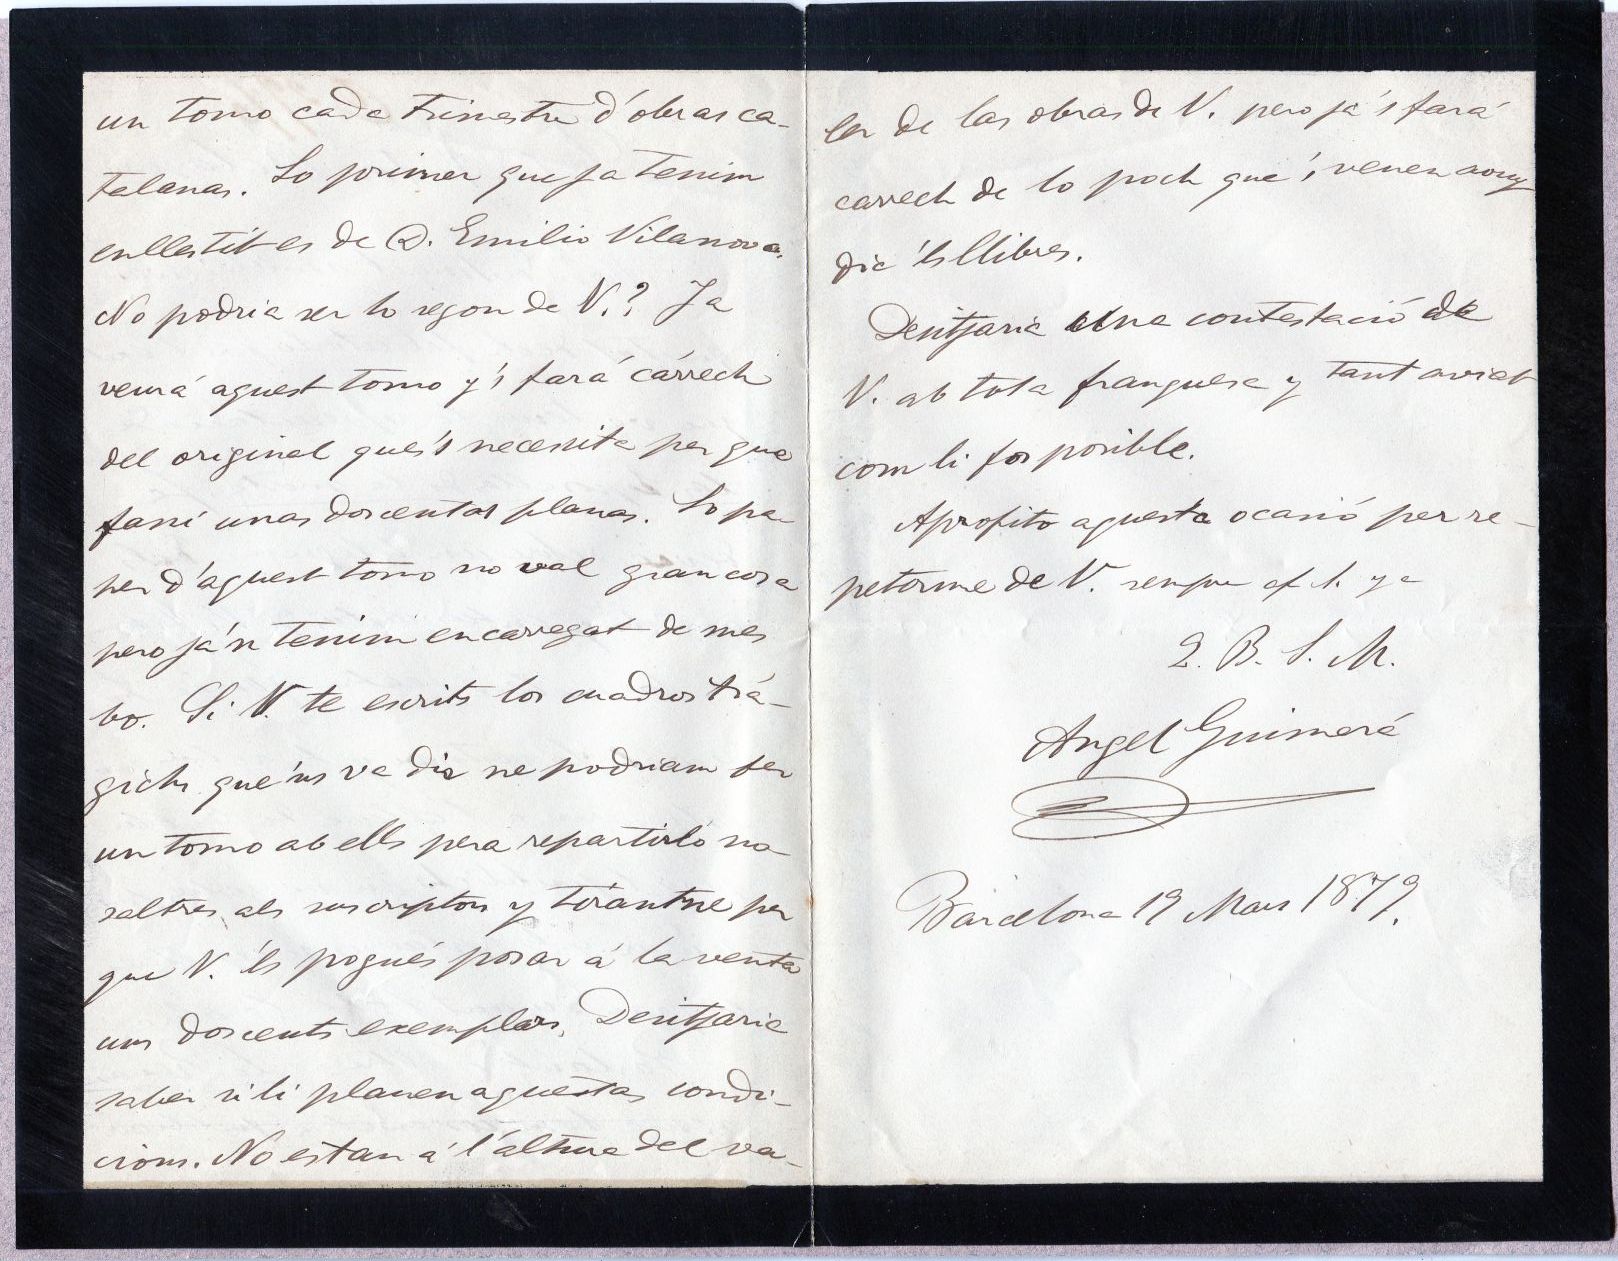 un tomo cada trimestre d'obras ca-
talanas. Lo primer que ja tenim
enllestit es de D. Emilio Vilanova.
No podria ser lo segon de V.? Ja
veurá aquest tomo y's fará cárrech
del original que's necessita per que
fassi unas doscentas planas. Lo pa-
per d'aquest tomo no val gran cosa
pero ja'n tenim encarregat de mes
bo. Si V. te escrits los cuadros trá-
gichs que'ns va dir ne podriam fer
un tomo ab ells pera repartirlo no-
saltres als suscriptors y tirantne per
que V. 'ls pogués posar á la venta
uns doscents exemplars. Desitjaria
saber si li plauen aquestas condi-
cions. No estan á l'altura del va-
lor de las obras de V. pero ja's fará
carrech de lo poch que's venen avuy
dia 'ls llibres.
Desitjaria una contestació de
V. ab tota franquesa y tant aviat
com li fos posible.
Aprofito aquesta ocasió per re-
petirme de V. sempre af. s. y a
Q. B. S. M.
Angel Guimerá
Barcelona 19 Mars 1879.